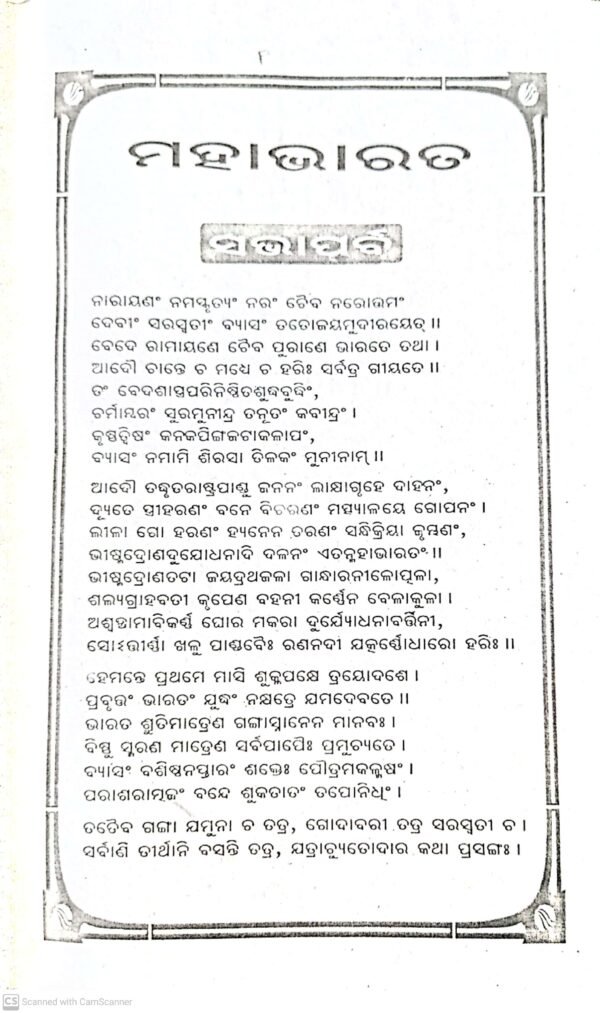 ୮
ମହାଭାରତ
ସଭାପର୍ବ
ନାରାୟଣଂ ନମସ୍କୃତ୍ୟଂ ନରଂ ଚୈବ ନରୋତ୍ତମଂ
ଦେବୀଂ ସରସ୍ୱତୀଂ ବ୍ୟାସଂ ତତୋଜୟମୁଦୀରୟେତ୍ ॥
ବେଦେ ରାମାୟଣେ ଚୈବ ପୁରାଣେ ଭାରତେ ତଥା ।
ଆଦୌ ଚାନ୍ତେ ଚ ମଧ୍ୟେ ଚ ହରିଃ ସର୍ବତ୍ର ଗୀୟତେ ॥
ତଂ ବେଦଶାସ୍ତ୍ରପରିନିଷ୍ଠିତଶୁଦ୍ଧବୁଦ୍ଧିଂ,
ଚର୍ମାୟରଂ ସୁରମୁନୀନ୍ଦ୍ର ତନୂତଂ କବୀନ୍ଦ୍ରଂ ।
କୃଷ୍ଣତ୍ୱିଷଂ କନକପିଙ୍ଗଜଟାକଳାପଂ,
ବ୍ୟାସଂ ନମାମି ଶିରସା ତିଳକଂ ମୁନୀନାମ୍ ॥
ଆଦୌ ତଦ୍ଧୃତରାଷ୍ଟ୍ରପାଣ୍ଡୁ ଜନନଂ ଲାକ୍ଷାଗୃହେ ଦାହନଂ,
ଦ୍ୟୂତେ ସ୍ତ୍ରୀହରଣଂ ବନେ ବିଚରଣଂ ମତ୍ସ୍ୟାଳୟେ ଗୋପନଂ ।
ଲୀଳା ଗୋ ହରଣଂ ହ୍ୟନେନ ତରଣଂ ସନ୍ଧିକ୍ରିୟା ଜୃମ୍ଭଣଂ,
ଭୀଷ୍ମଦ୍ରୋଣଦୁଯୋଧନାଦି ଦଳନଂ ଏତନ୍ମହାଭାରତଂ ॥
ଭୀଷ୍ମଦ୍ରୋଣତଟା ଜୟଦ୍ରଥଜଳା ଗାନ୍ଧାରନୀଳୋତ୍ପଳା,
ଶଲ୍ୟଗ୍ରାହବତୀ କୃପେଣ ବହନୀ କର୍ଣ୍ଣେନ ବେଳାକୁଳା ।
ଅଶ୍ୱତ୍ଥାମାବିକର୍ଣ୍ଣ ଘୋର ମକରା ଦୁର୍ଯ୍ୟୋଧନାବର୍ତ୍ତିନୀ,
ସୋଽତ୍ତୀର୍ଣ୍ଣା ଖଳୁ ପାଣ୍ଡବୈଃ ରଣନଦୀ ଯତ୍କର୍ଣ୍ଣୋଧାରୋ ହରିଃ ॥
ହେମନ୍ତେ ପ୍ରଥମେ ମାସି ଶୁକ୍ଳପକ୍ଷେ ତ୍ରୟୋଦଶେ ।
ପ୍ରବୃତ୍ତଂ ଭାରତଂ ଯୁଦ୍ଧଂ ନକ୍ଷତ୍ରେ ଯମଦେବତେ ॥
ଭାରତ ଶ୍ରୁତିମାତ୍ରେଣ ଗଙ୍ଗାସ୍ନାନେନ ମାନବଃ ।
ବିଷ୍ଣୁ ସ୍ମରଣ ମାତ୍ରେଣ ସର୍ବପାପୈଃ ପ୍ରମୁଚ୍ୟତେ ।
ବ୍ୟାସଂ ବଶିଷ୍ଠନପ୍ତାରଂ ଶକ୍ତେଃ ପୌତ୍ରମକଳ୍ମଷଂ ।
ପରାଶରାତ୍ମଜଂ ବନ୍ଦେ ଶୁକତାତଂ ତପୋନିଧିଂ ।
ତତୈବ ଗଙ୍ଗା ଯମୁନା ଚ ତତ୍ର, ଗୋଦାବରୀ ତତ୍ର ସରସ୍ୱତୀ ଚ ।
ସର୍ବାଣି ତୀର୍ଥାନି ବସନ୍ତି ତତ୍ର, ଯତ୍ରାଚ୍ୟୁତୋଦାର କଥା ପ୍ରସଙ୍ଗଃ ।
CS Scanned with CamScanner